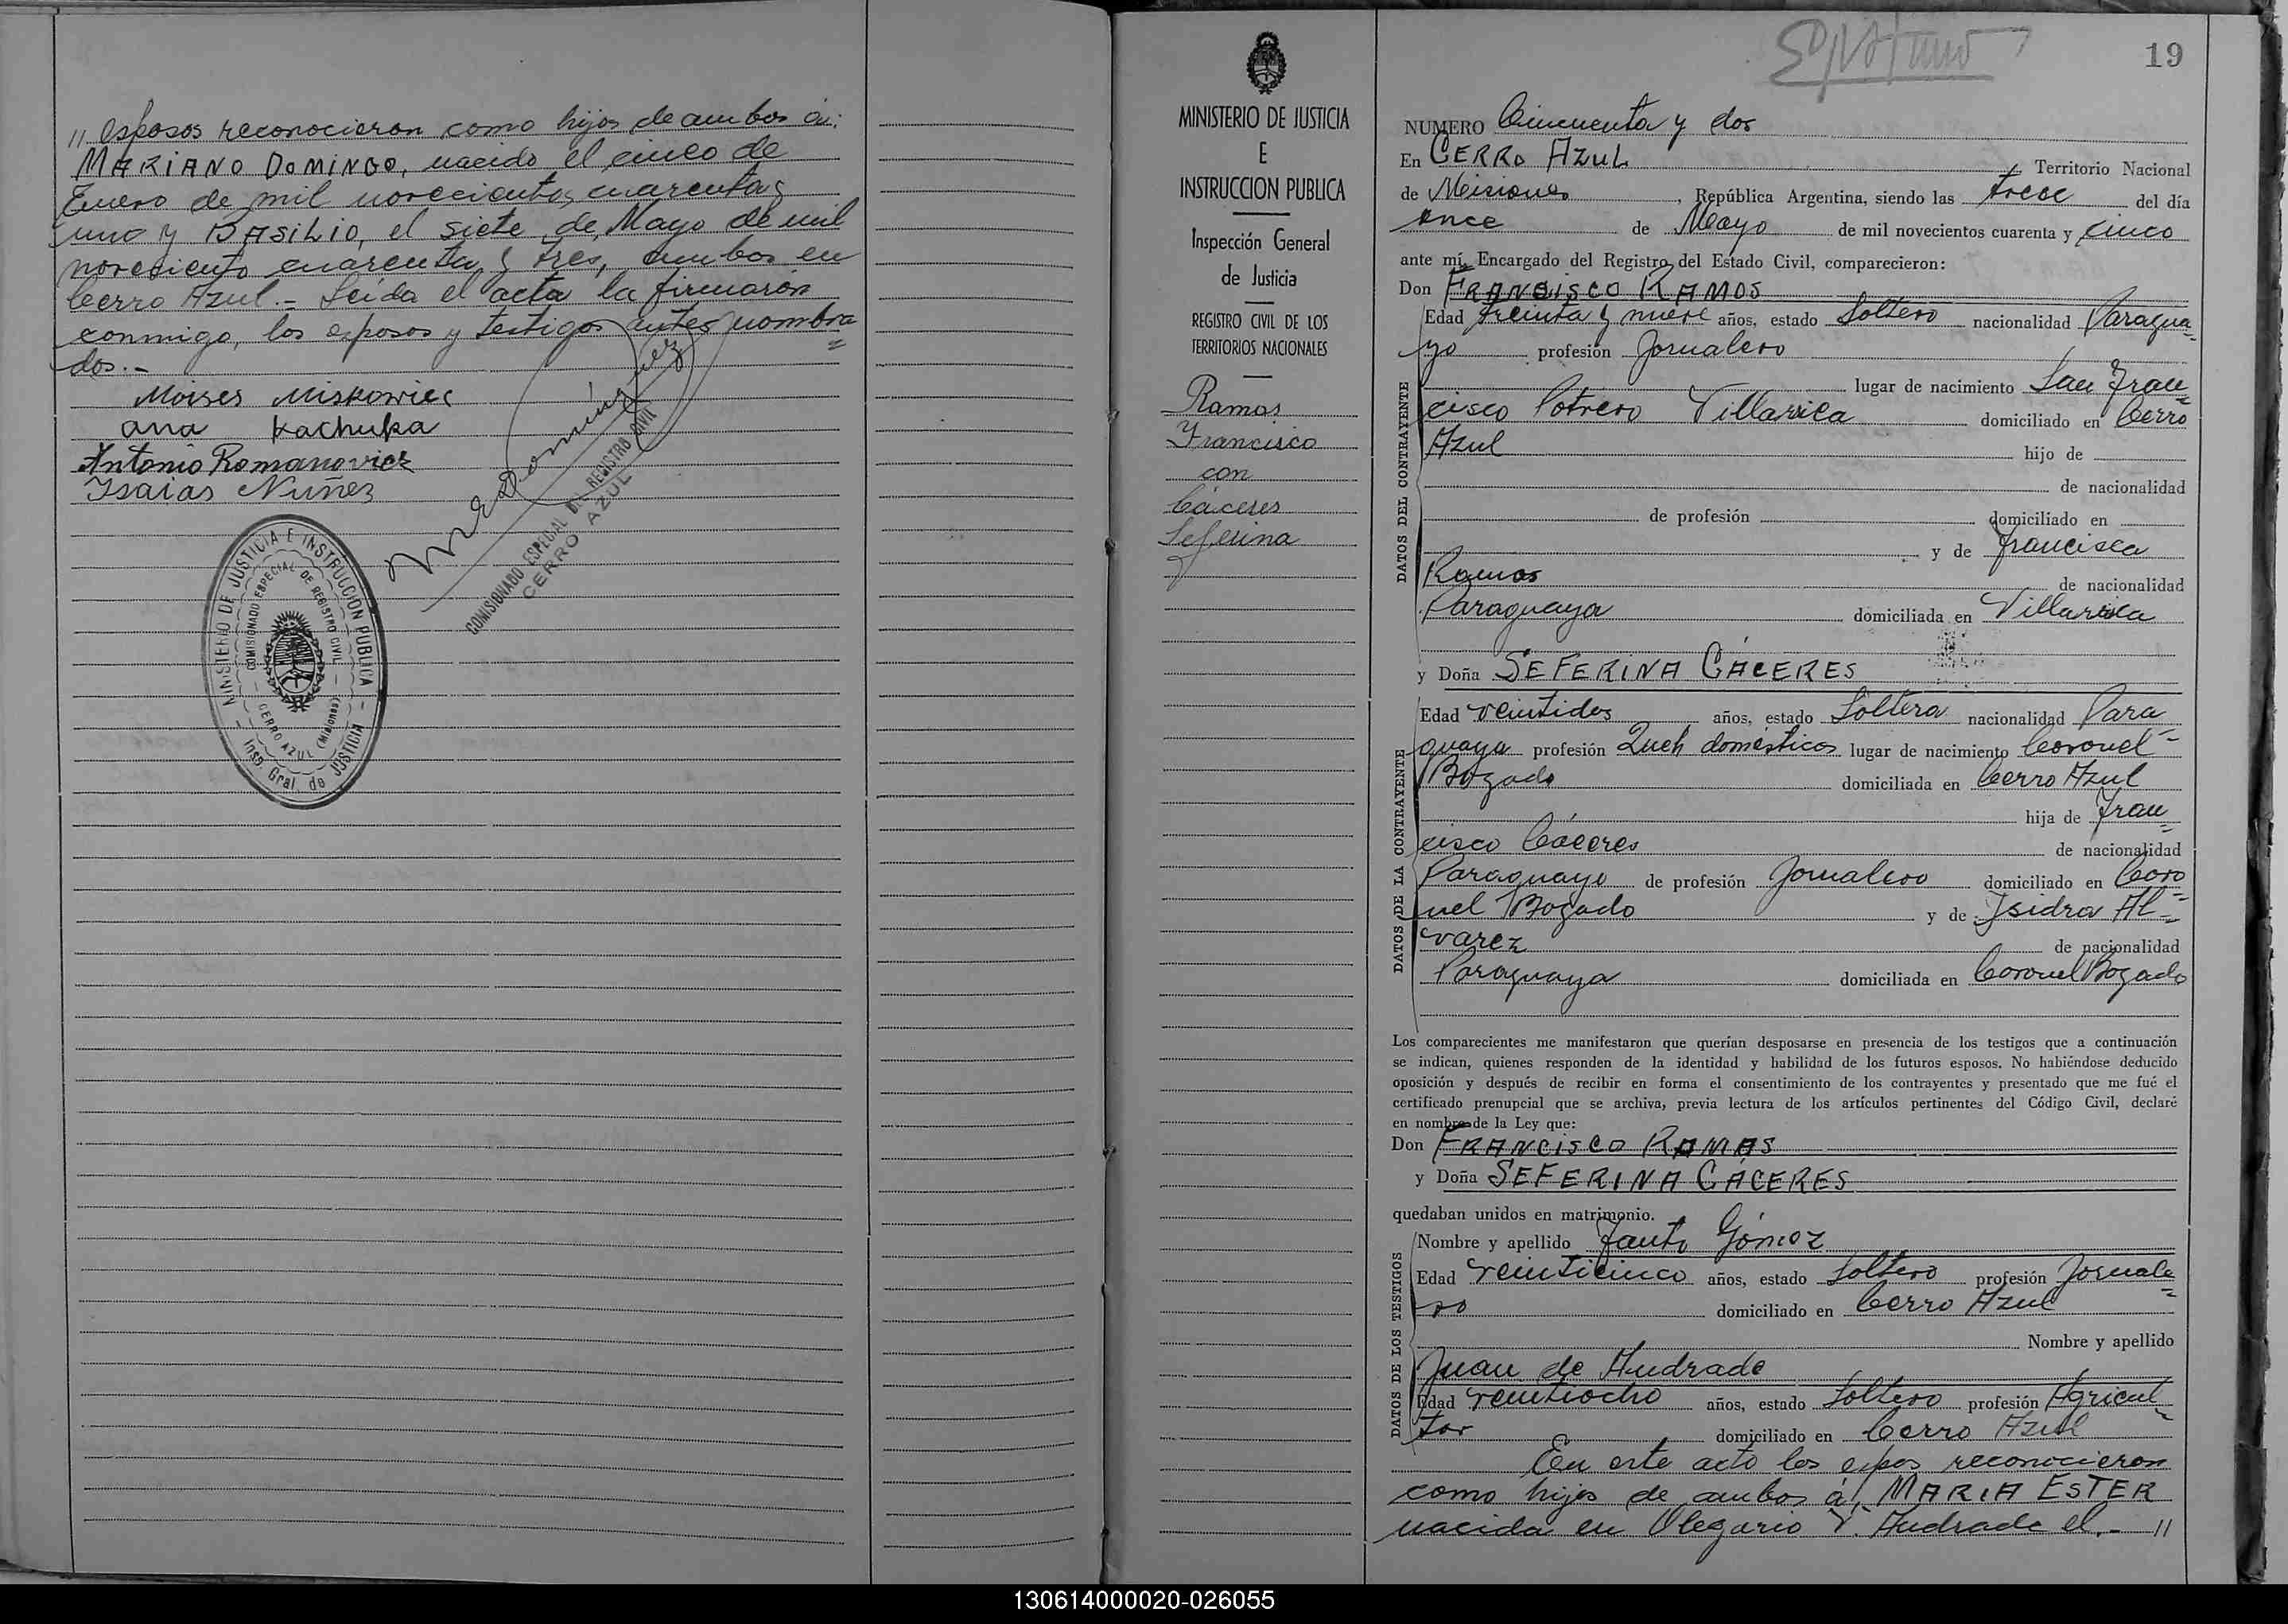 // esposos reconocieron como hijos de ambos a:
MARIANO DOMINGO, nacido el cinco de
Enero de mil novecientos cuarenta y
uno y BASILIO, el siete de Mayo de mil
novecientos cuarenta y tres, ambos en
Cerro Azul.- Leída el acta la firmaron
conmigo, los esposos y testigos antes nombra=
dos.-
Moises Miskowiec
Ana Kachuka
Antonio Romanovicz
Isaias Nuñez
COMISIONADO ESPECIAL DE REGISTRO CIVIL
CERRO AZUL
MINISTERIO DE JUSTICIA E INSTRUCCION PUBLICA
Insp. Gral. de JUSTICIA
COMISIONADO ESPECIAL DE REGISTRO CIVIL
CERRO AZUL (Misiones)
MINISTERIO DE JUSTICIA
E
INSTRUCCION PUBLICA
Inspección General
de Justicia
REGISTRO CIVIL DE LOS
TERRITORIOS NACIONALES
Ramos
Francisco
con
Cáceres
Seferina
19
NUMERO Cincuenta y dos
En CERRO AZUL Territorio Nacional
de Misiones, República Argentina, siendo las trece del día
once de Mayo de mil novecientos cuarenta y cinco
ante mí, Encargado del Registro del Estado Civil, comparecieron:
Don FRANCISCO RAMOS
DATOS DEL CONTRAYENTE
Edad treinta y nueve años, estado Soltero nacionalidad Paragua=
yo profesión Jornalero
lugar de nacimiento San Fran=
cisco Potrero Villarrica domiciliado en Cerro
Azul hijo de
de nacionalidad
de profesión domiciliado en
y de Francisca
Ramos de nacionalidad
Paraguaya domiciliada en Villarrica
y Doña SEFERINA CÁCERES
DATOS DE LA CONTRAYENTE
Edad veintidos años, estado Soltera nacionalidad Para=
guaya profesión Queh domésticos lugar de nacimiento Coronel
Bogado domiciliada en Cerro Azul
hija de Fran=
cisco Cáceres de nacionalidad
Paraguayo de profesión Jornalero domiciliado en Coro=
nel Bogado y de Isidra Al=
varez de nacionalidad
Paraguaya domiciliada en Coronel Bogado
Los comparecientes me manifestaron que querían desposarse en presencia de los testigos que a continuación
se indican, quienes responden de la identidad y habilidad de los futuros esposos. No habiéndose deducido
oposición y después de recibir en forma el consentimiento de los contrayentes y presentado que me fué el
certificado prenupcial que se archiva, previa lectura de los artículos pertinentes del Código Civil, declaré
en nombre de la Ley que:
Don FRANCISCO RAMAS
y Doña SEFERINA CÁCERES
quedaban unidos en matrimonio.
DATOS DE LOS TESTIGOS
Nombre y apellido Gómez
Edad veinticinco años, estado Soltero profesión Jornale=
ro domiciliado en Cerro Azul
Nombre y apellido
Juan de Andrade
Edad veintiocho años, estado Soltero profesión Agricul=
tor domiciliado en Cerro Azul
En este acto los espos reconocieron
como hijos de ambos a, MARIA ESTER
nacida en Olegario V. Andrade el.- //
130614000020-026055